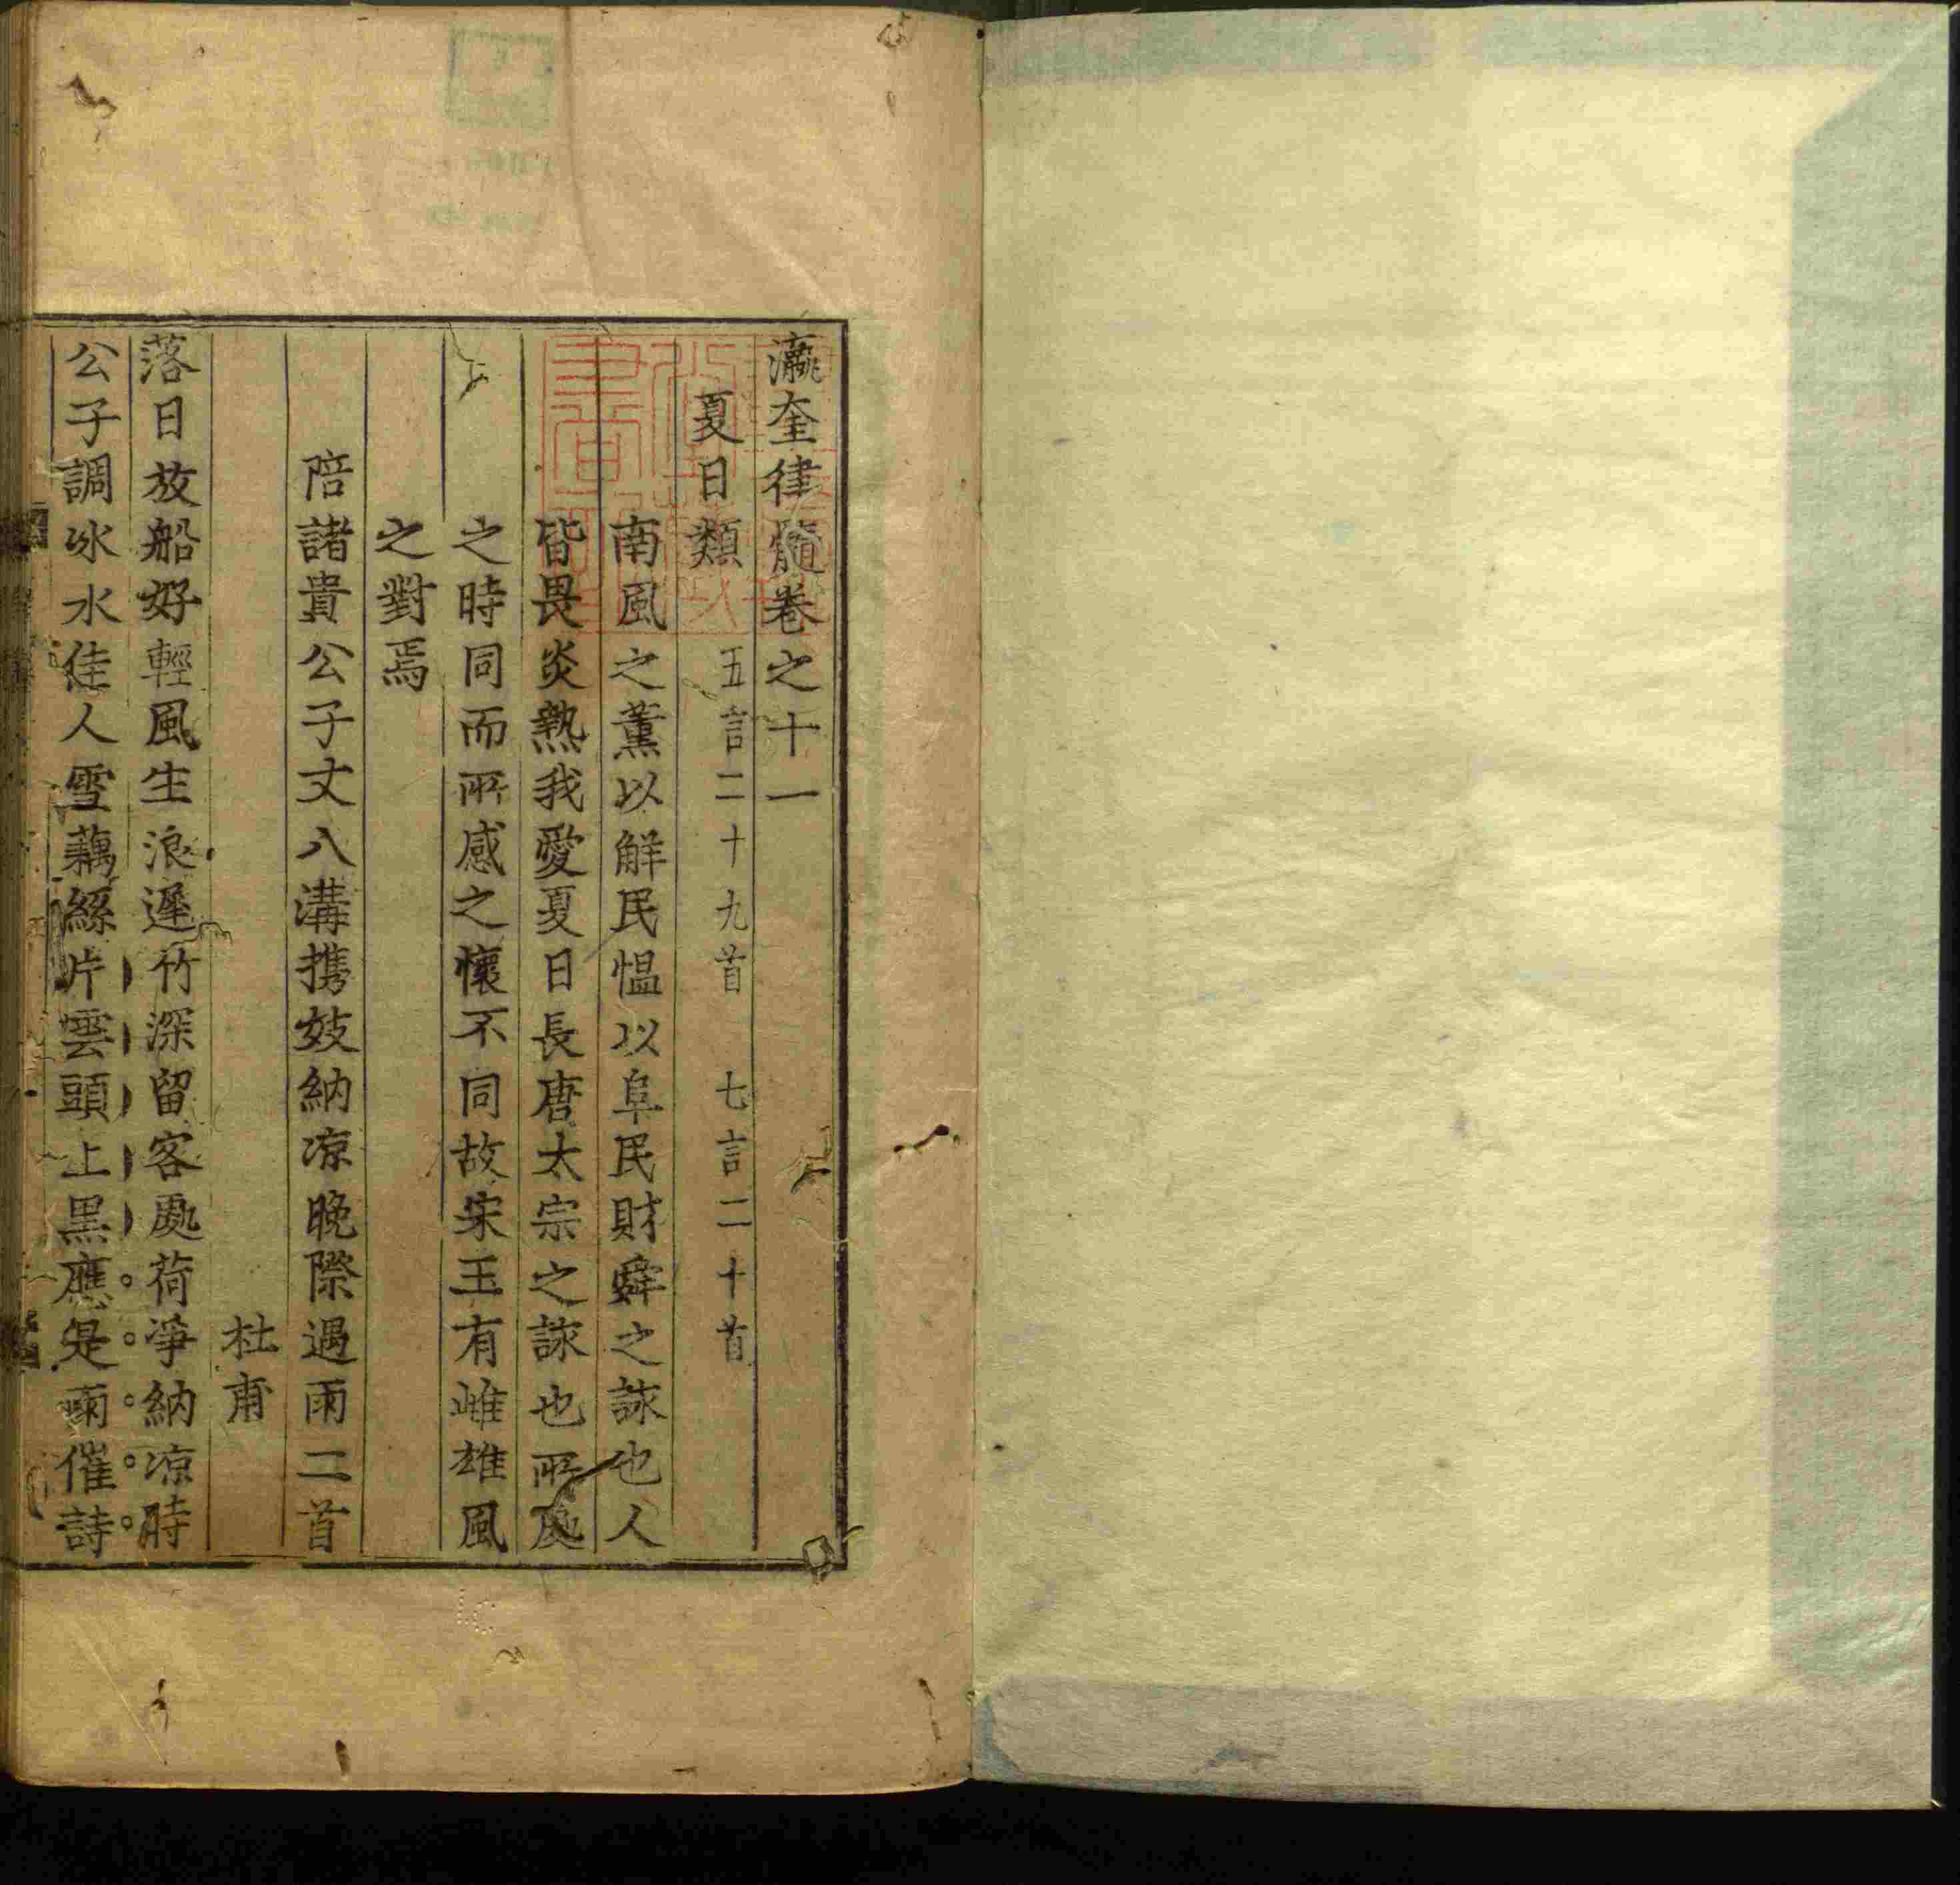 瀛奎律髓卷之十一
夏日類 五言二十九首 七言二十首
南風之薰以解民愠以阜民財舜之詠也人
皆畏炎熱我愛夏日長唐太宗之詠也所處
之時同而所感之懷不同故宋玉有雌雄風
之對焉
陪諸貴公子丈八溝携妓納凉晚際遇雨二首
杜甫
落日放船好輕風生浪遲竹深留客處荷淨納凉時
公子調冰水佳人雪藕絲片雲頭上黑應是雨催詩